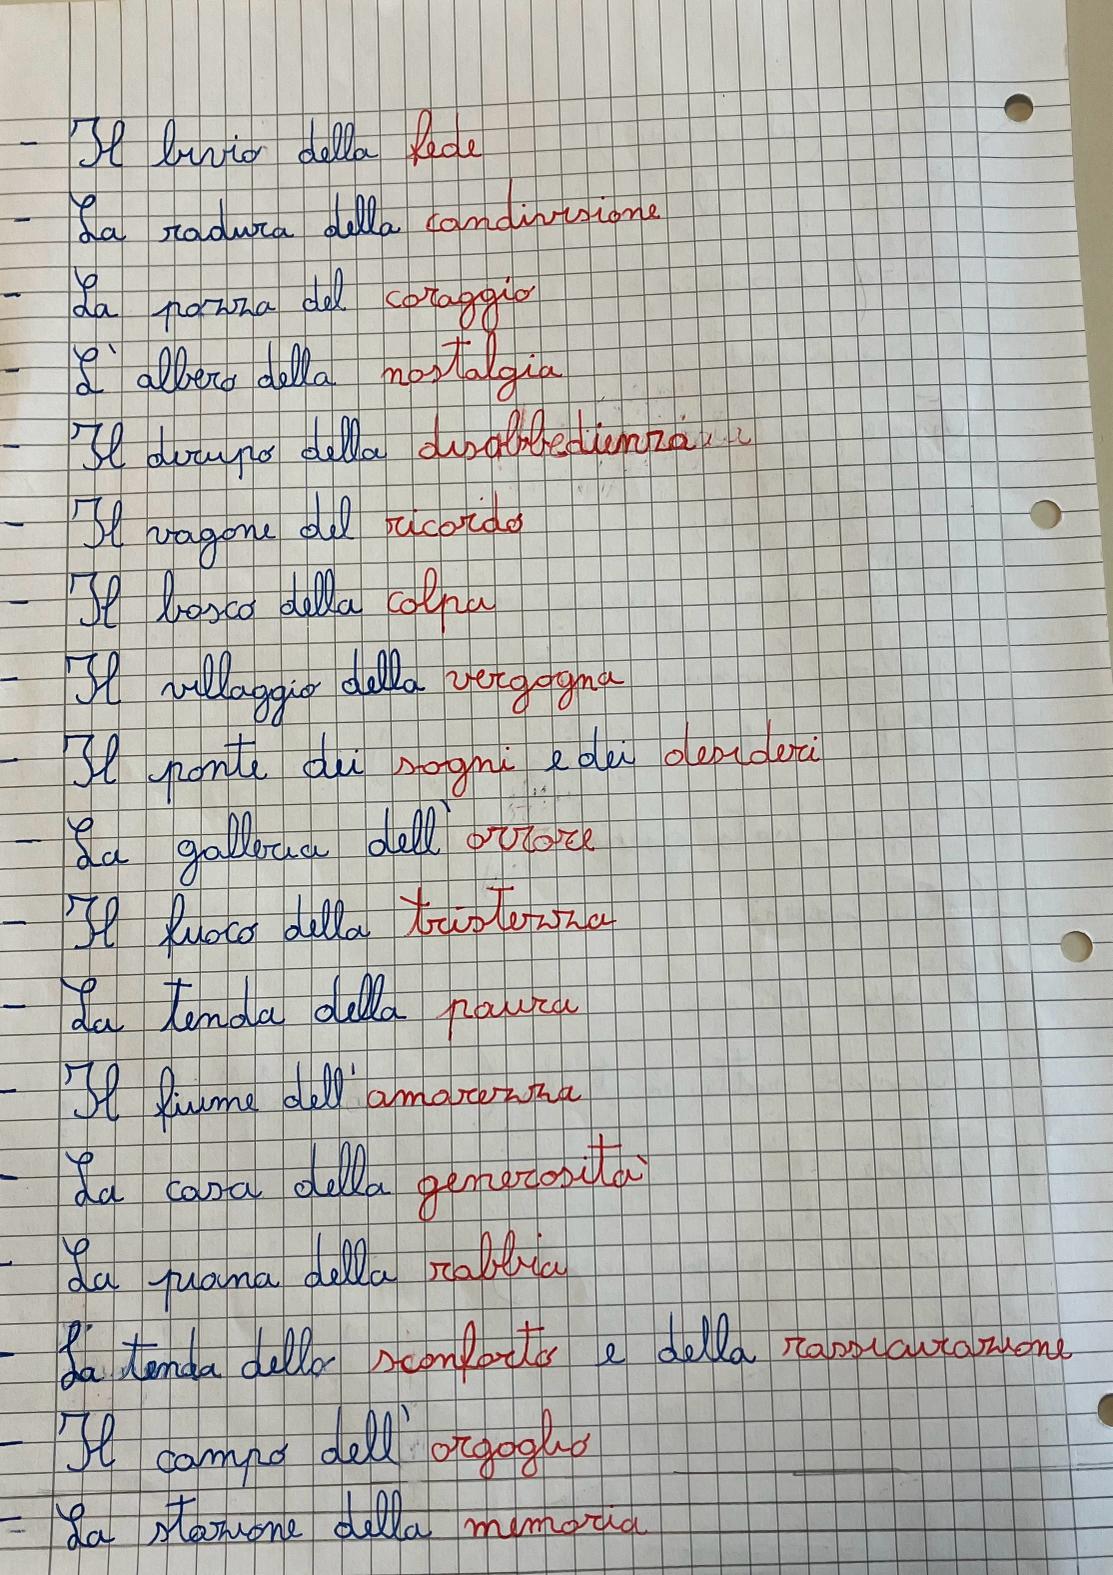 - Il bivio della fede
- La radura della condivisione
- La pozza del coraggio
- L'albero della nostalgia
- Il dirupo della disobbedienza
- Il vagone del ricordo
- Il bosco della colpa
- Il villaggio della vergogna
- Il ponte dei sogni e dei desideri
- La galleria dell'orrore
- Il fuoco della tristezza
- La tenda della paura
- Il fiume dell'amarezza
- La casa della generosità
- La piana della rabbia
- La tenda dello sconforto e della rassicurazione
- Il campo dell'orgoglio
- La stazione della memoria